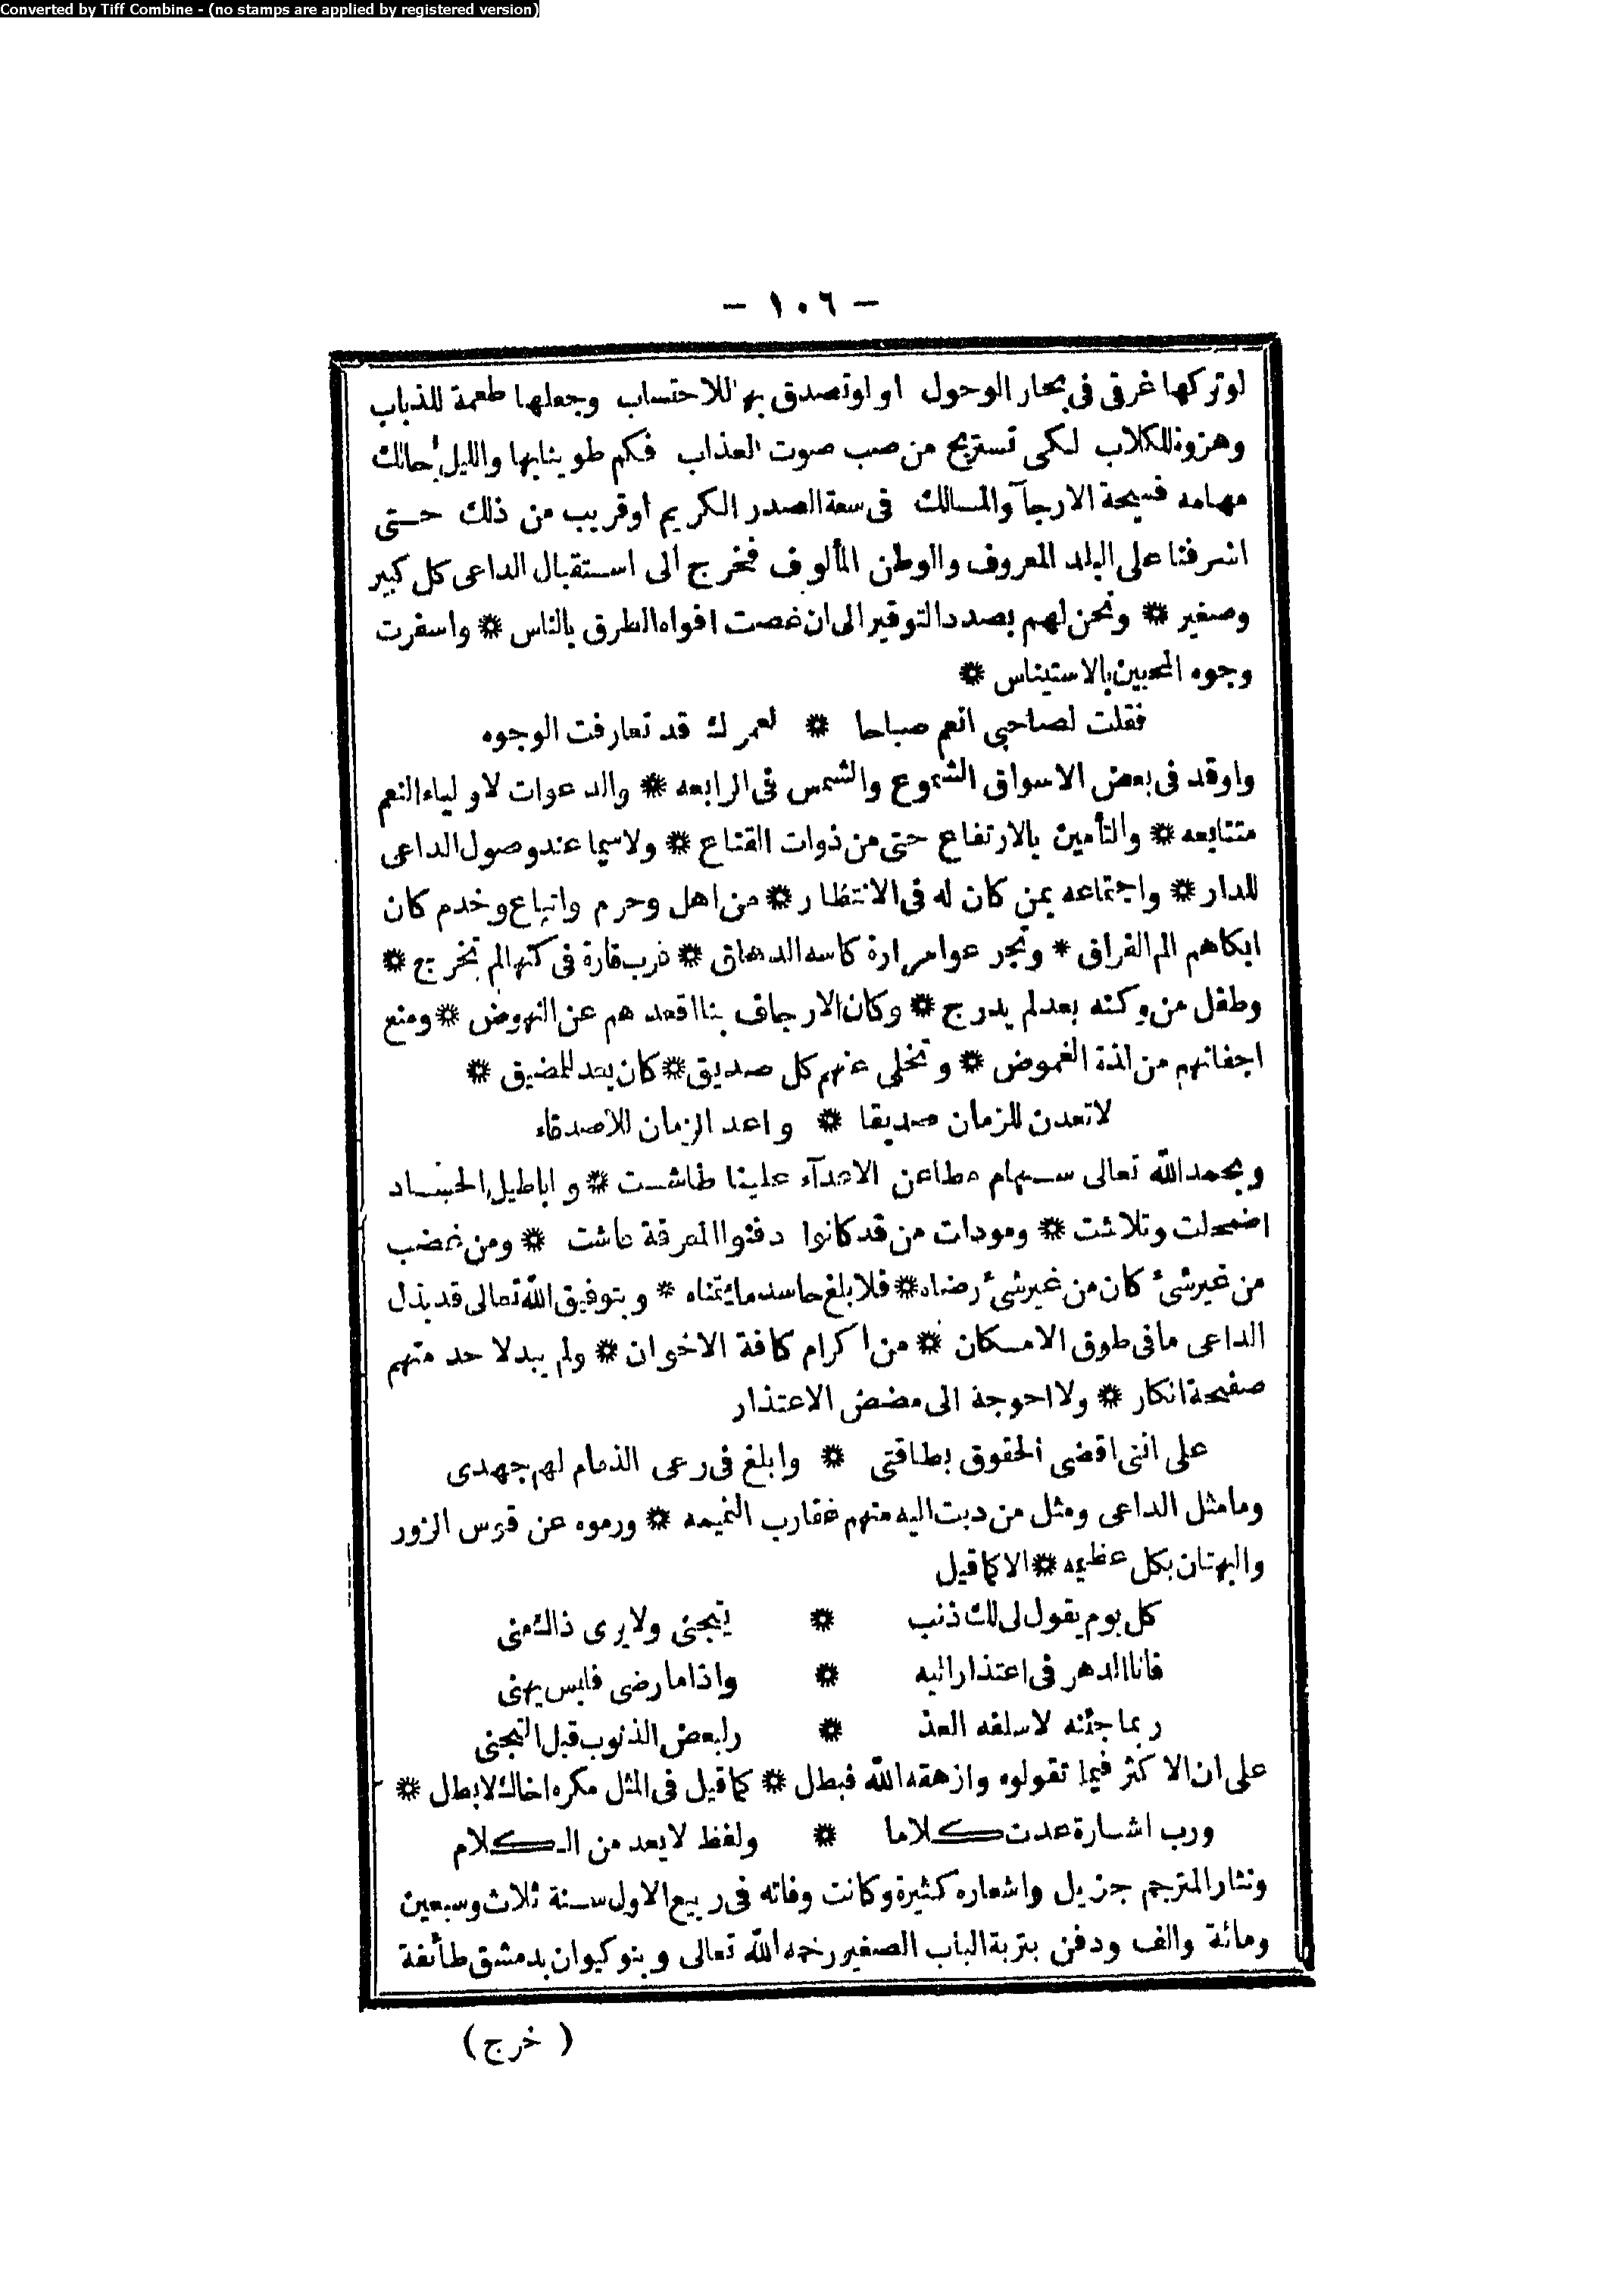 Converted by Tiff Combine - (no stamps are applied by registered version)
- ١٠٦ -
لو تركها غرقى فى بحار الوحول او لو تصدق بها للاحتساب وجعلها طعمة للذباب
وهزوة للكلاب لكى تستريح من صب صوت العذاب فكم طوينا بها والليل حالك
مهامه فسيحة الارجآ والمسالك فى سعة الصدر الكريم او قريب من ذلك حتى
اشرفنا على البلد المعروف والوطن المألوف فخرج الى استقبال الداعى كل كبير
وصغير * ونحن لهم بصدد التوقير الى ان غصت افواه الطرق بالناس * واسفرت
وجوه المحبين بالاستيناس *
فقلت لصاحبى انعم صباحا * لعمرك قد تعارفت الوجوه
واوقد فى بعض الاسواق الشموع والشمس فى الرابعه * والدعوات لاولياء النعم
متتابعه * والتأمين بالارتفاع حتى من ذوات القناع * ولاسيما عند وصول الداعى
للدار * واجتماعه بمن كان له فى الانتظار * من اهل وحرم واتباع وخدم كان
ابكاهم الم الفراق * وتجرعوا مرارة كاسه الدهاق * فرب قارة فى كنها لم تخرج *
وطفل من وكنه بعد لم يدرج * وكان الارجاف بنا اقعدهم عن النهوض * ومنع
اجفانهم من لذة الغموض * وتخلى عنهم كل صديق * كان يعد للمضيق *
لا تعدن للزمان صديقا * واعد الزمان للاصدقاء
وبحمد الله تعالى سهام مطاعن الاعدآء علينا طاشت * واباطيل الحساد
اضمحلت وتلاشت * ومودات من قد كانوا دفنوا المعرفة عاشت * ومن غضب
من غير شئ كان من غير شئ رضاه * فلا بلغ حاسد ما يتمناه * وبتوفيق الله تعالى قد بذل
الداعى ما فى طوق الامكان * من اكرام كافة الاخوان * ولم يبد لاحد منهم
صفيحة انكار * ولا احوجة الى مضض الاعتذار
على اننى اقضى الحقوق بطاقتى * وابلغ فى رعى الذمام لهم جهدى
وما مثل الداعى ومثل من دبت اليه منهم عقارب النميمه * ورموه عن قوس الزور
والبهتان بكل عظيمه * الا كما قيل
كل يوم يقول لى لك ذنب * يتجنى ولا يرى ذاك منى
فانا الدهر فى اعتذار اليه * واذا ما رضى فليس يهنى
ربما جئنه لاسلفه العذ * ر لبعض الذنوب قبل التجنى
على ان الاكثر فيما تقولوه وازهقه الله فبطل * كما قيل فى المثل مكره اخاك لا بطل *
ورب اشارة عدت كلاما * ولفظ لا يعد من الكلام
ونثار المترجم جزيل واشعاره كثيرة وكانت وفاته فى ربيع الاول سنة ثلاث وسبعين
ومائة والف ودفن بتربة الباب الصغير رحمه الله تعالى وبنو كيوان بدمشق طائفة
( خرج )